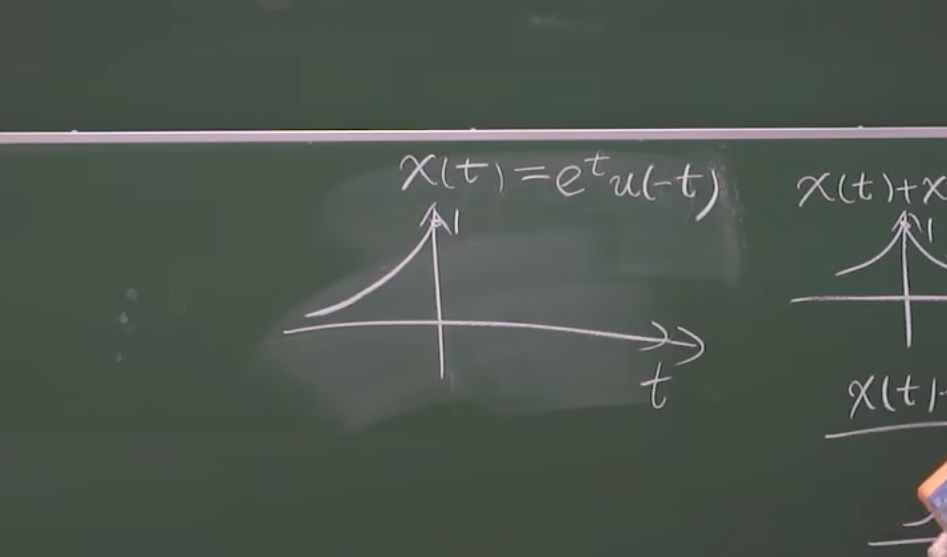 x(t)=e^t u(-t)
1
t
x(t)+x
1
x(t)-